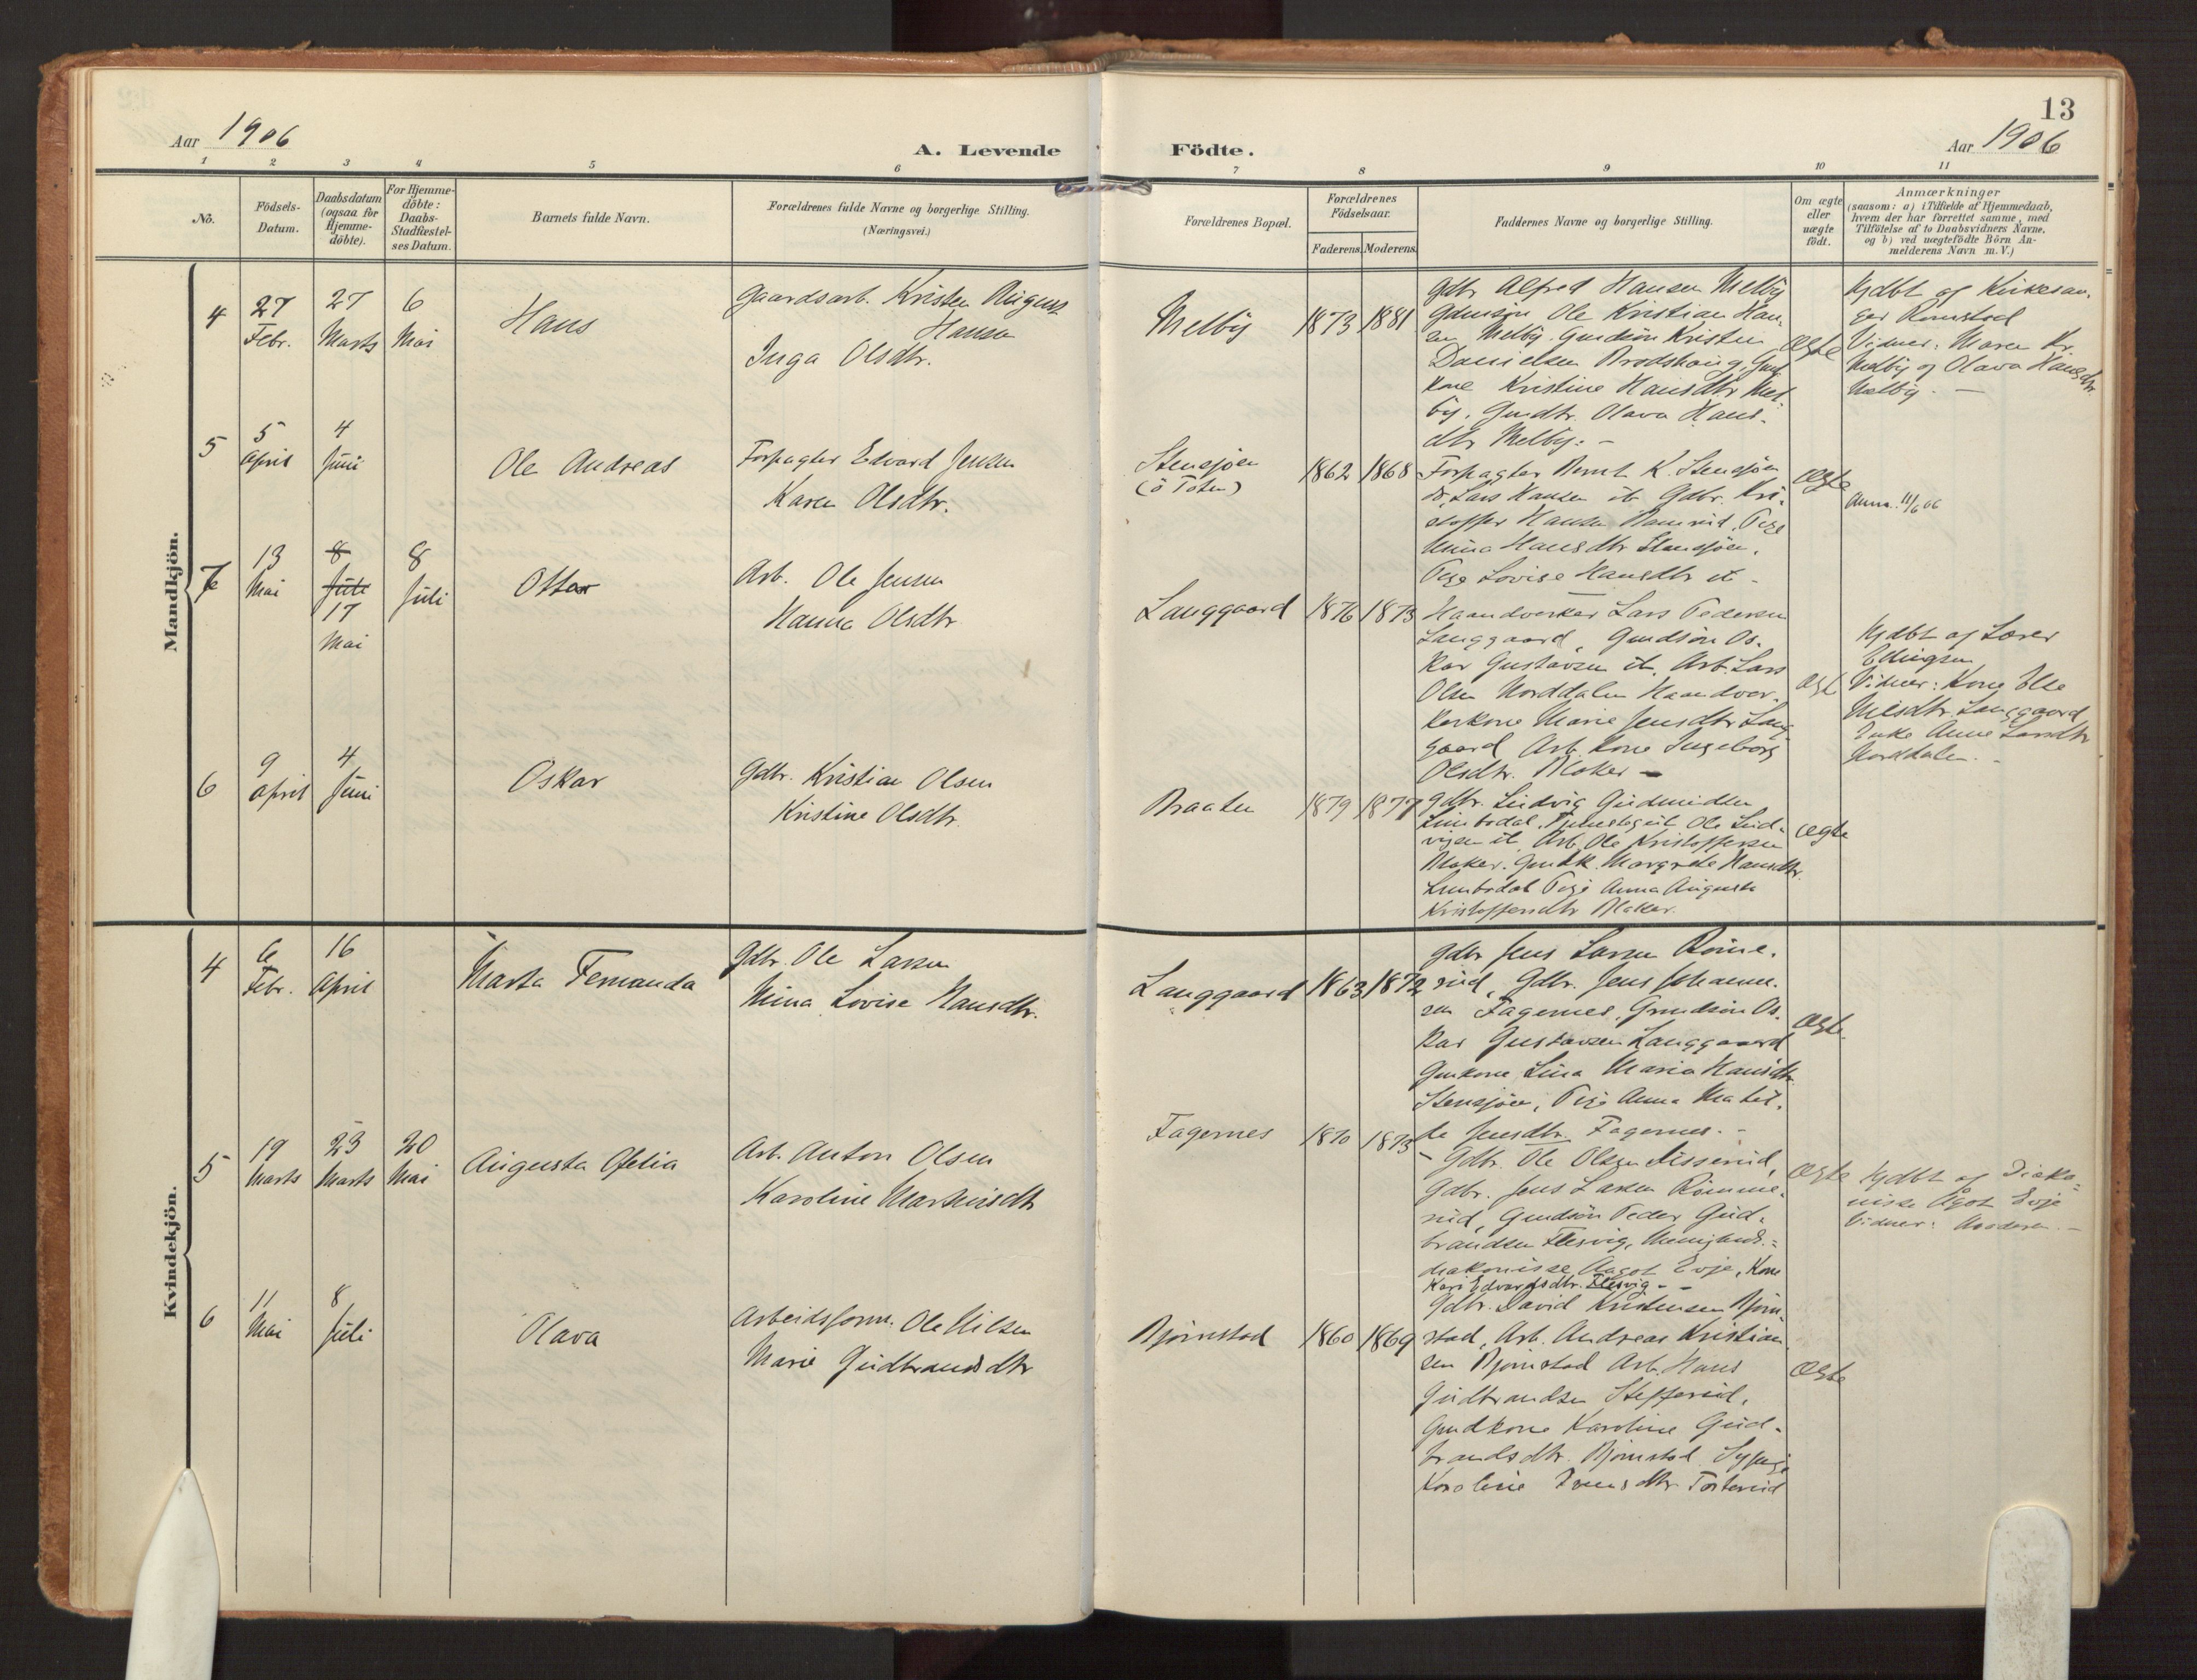 13
Aar 1906
A. Levende Födte.
Aar 1906
1 2 3 4 5 6 7 8 9 10 11
No.
Födsels-
Datum.
Daabsdatum
(ogsaa for
Hjemme-
döbte).
For Hjemme-
döbte:
Daabs-
Stadfæstel-
ses Datum.
Barnets fulde Navn.
Forældrenes fulde Navne og borgerlige Stilling.
(Næringsvei.)
Forældrenes Bopæl.
Forældrenes
Födselsaar.
Faderens. Moderens.
Faddernes Navne og borgerlige Stilling.
Om ægte
eller
uægte
födt.
Anmærkninger
(saasom: a) i Tilfælde af Hjemmedaab,
hvem der har forrettet samme, med
Tilföielse af to Daabsvidners Navne,
og b) ved uægtefödte Börn An-
melderens Navn m. V.)
Mandkjön.
4
27
Febr.
27
Marts
6
Mai
Hans
Gaardsarb. Kristen August
Hansen
Inga Olsdtr.
Melby
1873 1881
Gdbr Alfred Hansen Melby
Gdmsön Ole Kristian Han-
sen Melby. Gmdsön Kristen
Danielsen Brodshaug, Gmd
kone Kristine Hansdtr Mel-
by, Gmdtr. Olava Hans-
dtr Melby. -
ægte
Hjdbt af Kirkesan-
ger Romstad
Vidner: Maren Kr.
Melby og Olava Hansdtr.
Melby. -
5
5
April
4
Juni
Ole Andreas
Forpagter Edvard Jensen
Karen Olsdtr.
Stensjöen
(ö Toten)
1862 1868
Forpagter Bernt K. Stensjöen
Lars Hansen ib. Gdbr. Kri-
stoffer Hansen Ramrud, Pige
Mina Hansdtr Stensjöen,
Pige Lovise Hansdtr ib -
ægte
Anm. 11/6 06
7
13
Mai
8
Juli
17
Mai
8
Juli
Ottar
Arb. Ole Jensen
Hanna Olsdtr
Langgaard
1876 1873
Haandverker Lars Pedersen
Langgaard, Gmdsön Os-
kar Gustavsen ib, Arb. Lars
Olsen Norddalen Haandver-
kerkone Marie Jensdtr Lang
gaard Arb. kone Ingeborg
Olsdtr. Bloker -
ægte
Hjdbt af Lærer
Ellingsen
Vidner: Kone Else
Nilsdtr. Langgaard
Enke Anne Larsdtr
Norddalen. -
6
9
April
4
Juni
Oskar
Gdbr. Kristian Olsen
Kristine Olsdtr.
Braaten
1879 1877
Gdbr. Ludvig Gudmundsen
Limbodal, Tjenestegut Ole Lud-
vigsen ib, Arb. Ole Kristoffersen
Bloker. Gmdk. Margrete Hansdtr.
Limbodal Pige Anna Augusta
Kristoffersdtr Bloker.
ægte
Kvindekjön.
4
6
Febr.
16
April
Marta Fernanda
Gdbr. Ole Larsen
Mina Lovise Hansdtr.
Langgaard
1863 1872
Gdbr Jens Larsen Röme-
rud, Gdbr. Jens Johanne-
sen Fagernes, Gmdsön Os-
kar Gustavsen Langgaard
Gmkone Lina Maria Hansdtr
Stensjöen, Pige Anna Matil-
de Jensdtr. Fagernes. -
ægte
5
19
Marts
23
Marts
20
Mai
Augusta Ofelia
Arb. Anton Olsen
Karoline Martinsdtr
Fagernes
1870 1873
- Gdbr. Ole Olsen Lisserud,
Gdbr. Jens Larsen Römme-
rud, Gmdsön Peder Gud-
brandsen Flesvig, Menigheds-
diakonisse Aagot Evje, Kone
Kari Edvardsdtr. Flesvig -
ægte
Hjdbt af Diako-
nisse Ågot Evje
Vidner: Moderen. -
6
11
Mai
8
Juli
Olava
Arbeidsform. Ole Nilsen
Marie Gudbrandsdtr
Bjørnstad
1860 1869
Gdbr. David Kristensen Bjørn
stad, Arb. Andreas Kristian
sen Bjørnstad Arb. Hans
Gudbrandsen Stefferud,
Gmdkone Karoline Gud-
brandsdtr. Bjørnstad Sypige
Karoline Jensdtr. Tosterud
ægte